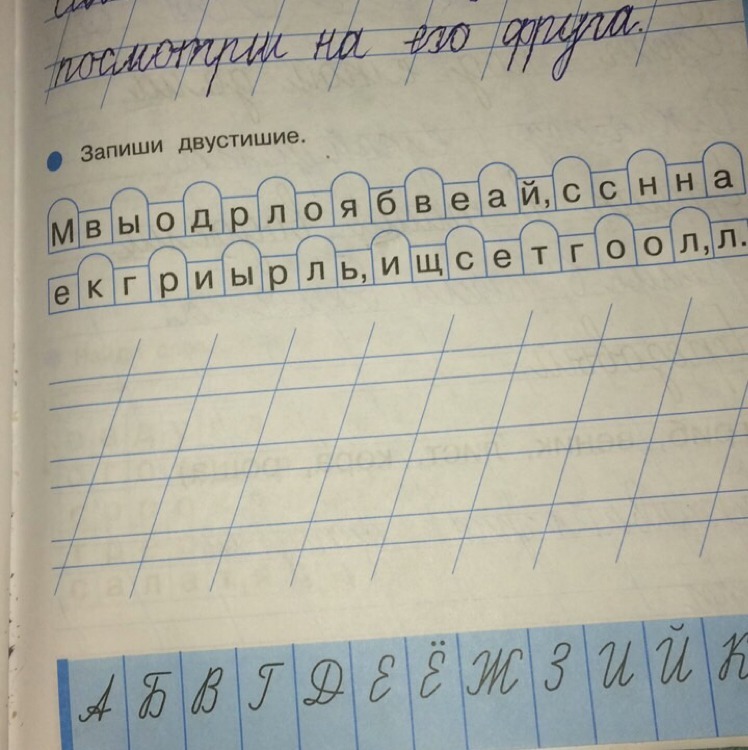 посмотри на его друга.
Запиши двустишие.
М в ы о д р л о я б в е а й, с с н н а
е к г р и ы р л ь, и щ с е т г о о л, л.
А Б В Г Д Е Ё Ж З И Й К